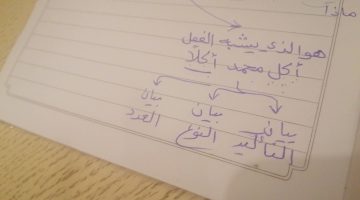 ماذا
هو الذي يشبه الفعل
أكل محمد أكلاً
بيان بيان بيان
التأكيد النوع العدد